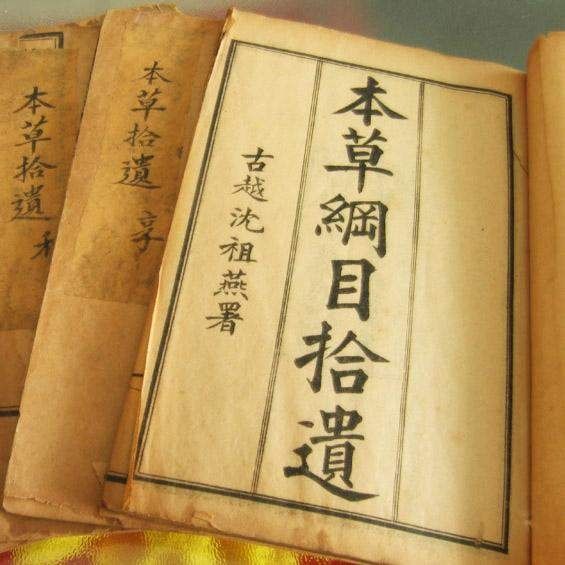 本草綱目拾遺
古越沈祖燕署
本草拾遺 亨
本草拾遺 利